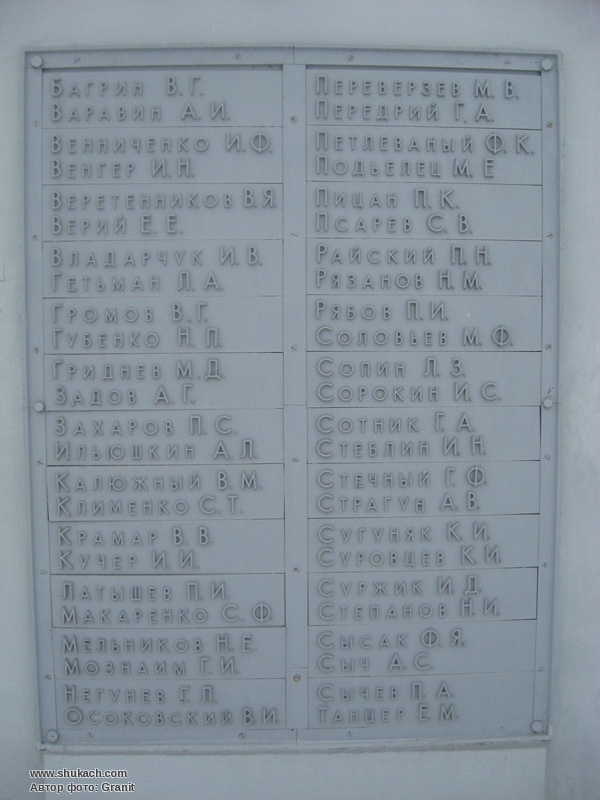 Багрин В.Г.
Варавин А.И.
Венниченко И.Ф.
Венгер И.Н.
Веретенников В.Я
Верий Е.Е.
Владарчук И.В.
Гетьман Л.А.
Громов В.Г.
Губенко Н.П.
Гриднев М.Д.
Задов А.Г.
Захаров П.С.
Ильюшкин А.Л.
Калюжный В.М.
Клименко С.Т.
Крамар В.В.
Кучер И.И.
Латышев П.И.
Макаренко С.Ф
Мельников Н.Е.
Мознаим Г.И.
Негунев Г.П.
Осоковский В.И.
Переверзев М.В.
Передрий Г.А.
Петлеваный Ф.К.
Подьелец М.Е
Пицан П.К.
Псарев С.В.
Райский П.Н.
Рязанов Н.М.
Рябов П.И.
Соловьев М.Ф.
Сопин Л.З.
Сорокин И.С.
Сотник Г.А.
Стеблин И.Н.
Стечный Г.Ф.
Страгун А.В.
Сугуняк К.И.
Суровцев К.И.
Суржик И.Д
Степанов Н.И.
Сысак Ф.Я.
Сыч А.С.
Сычев П.А.
Танцер Е.М.
www.shukach.com
Автор фото: Granit